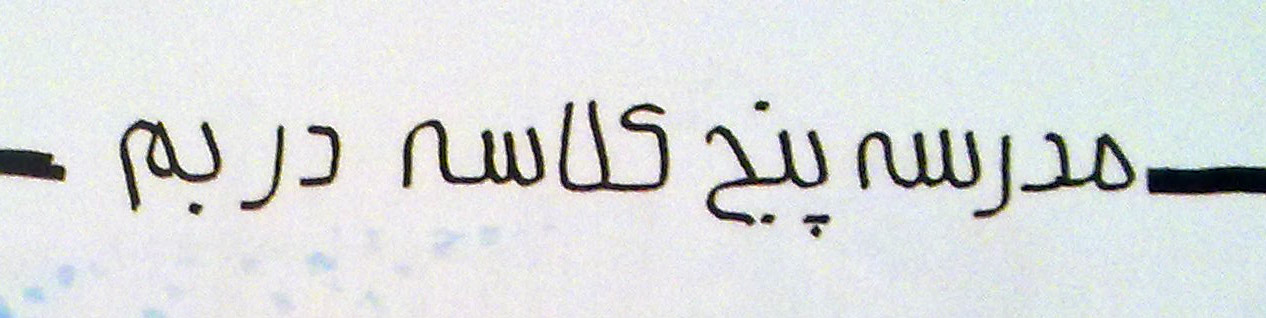 مدرسه پنج کلاسه در بم